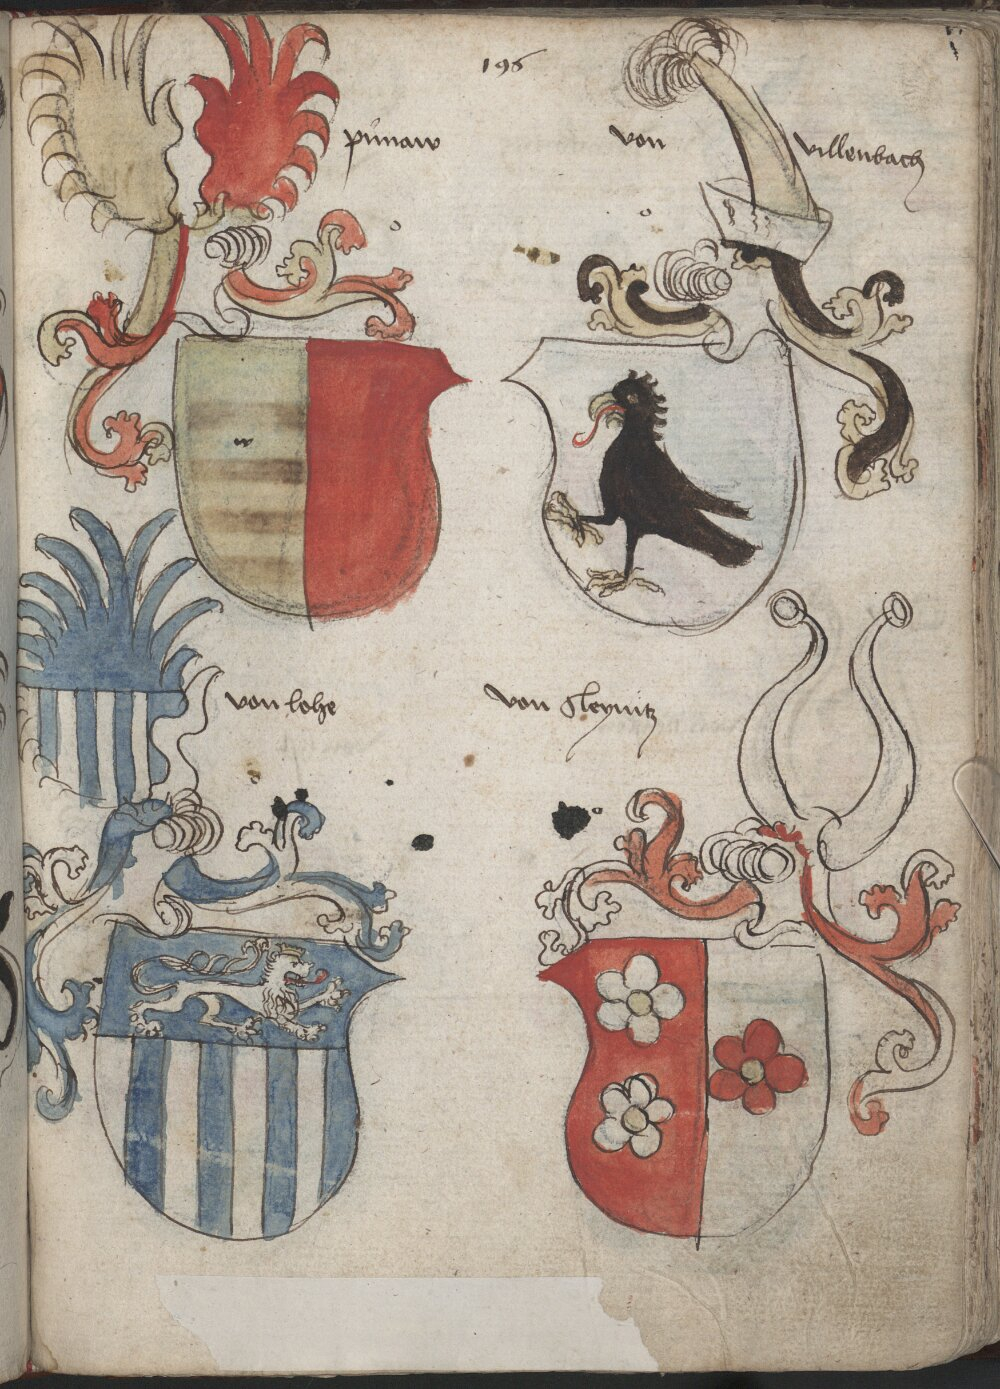 196
púnaw
von villenbach
w
von lohe
von sleynitz